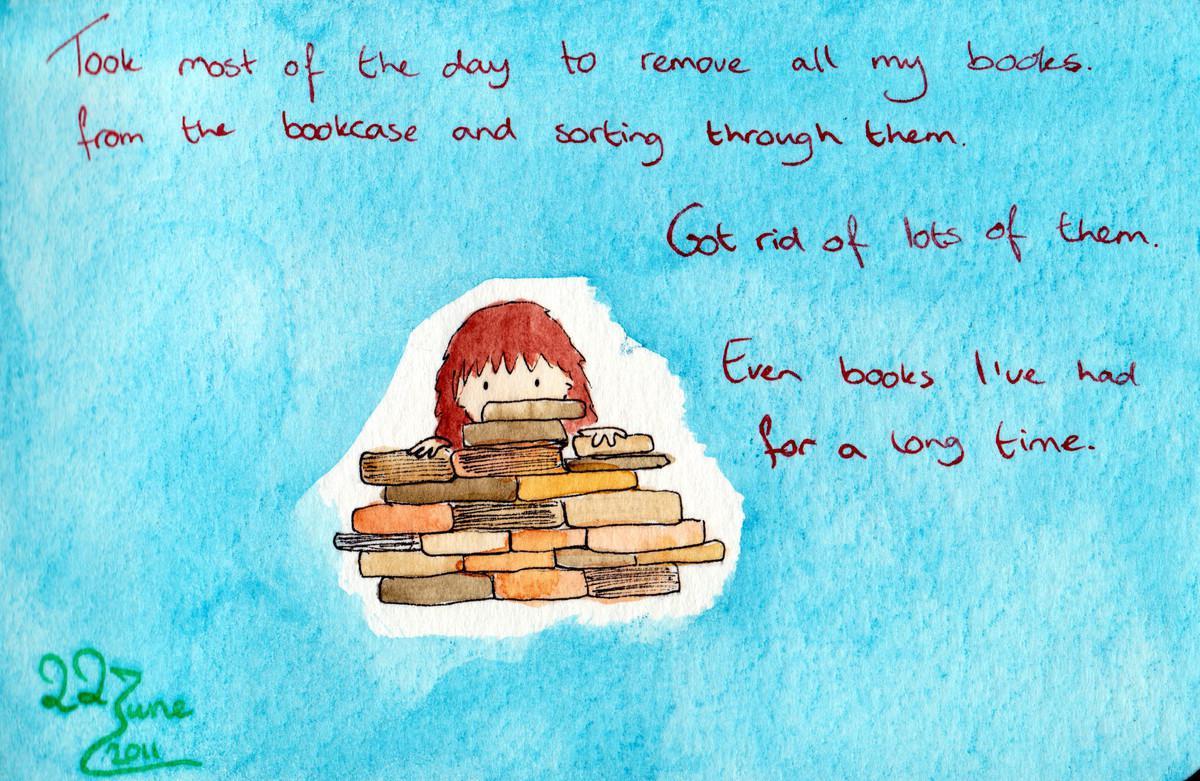 Took most of the day to remove all my books.
from the bookcase and sorting through them.
Got rid of lots of them.
Even books I've had
for a long time.
22 June
2011